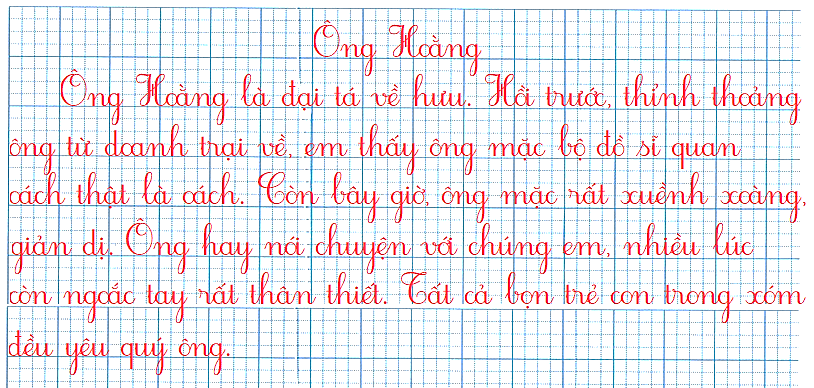 Ông Hoằng
Ông Hoằng là đại tá về hưu. Hồi trước, thỉnh thoảng
ông từ doanh trại về, em thấy ông mặc bộ đồ sĩ quan
oách thật là oách. Còn bây giờ, ông mặc rất xuềnh xoàng,
giản dị. Ông hay nói chuyện với chúng em, nhiều lúc
còn ngoắc tay rất thân thiết. Tất cả bọn trẻ con trong xóm
đều yêu quý ông.